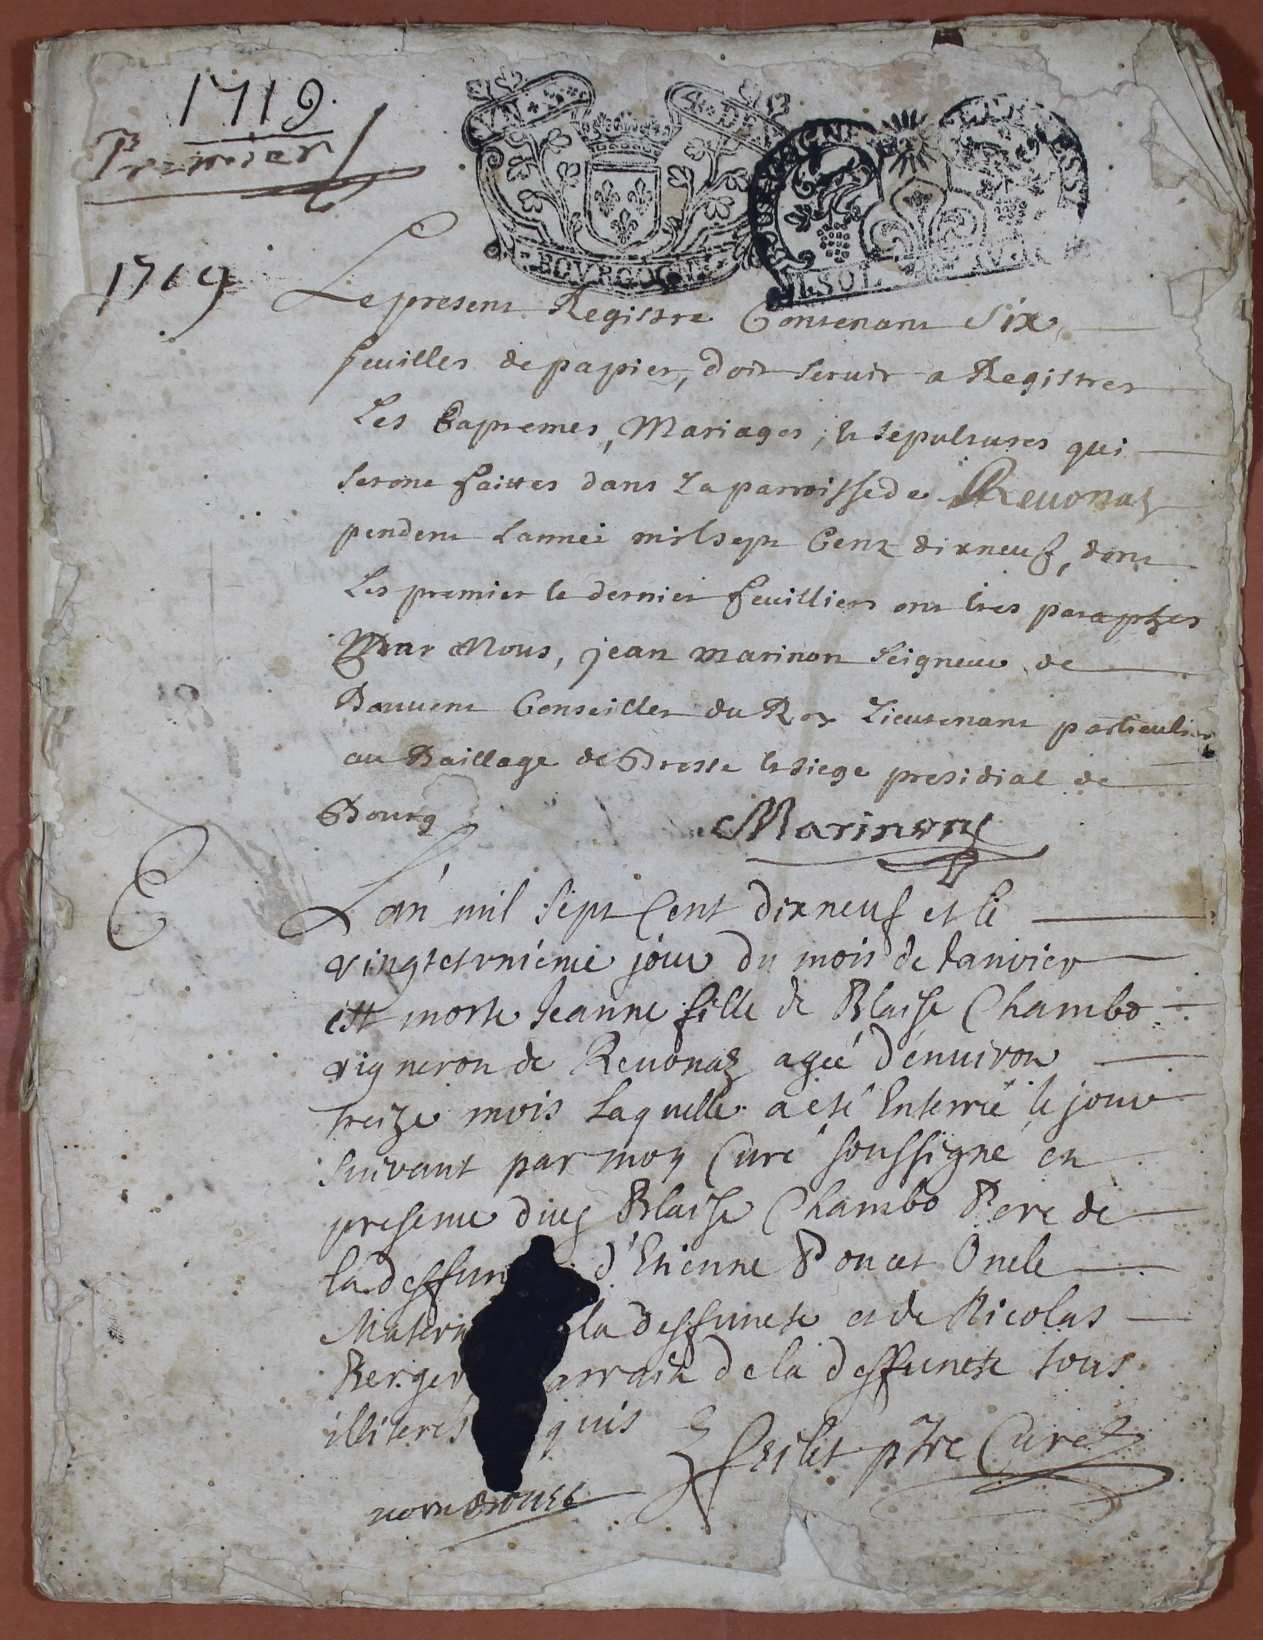 1719.
Premier
VN S. 4 DEN
BOVRGOGNE
1719
Le present Registre Contenant Six
feuilles de papier, doit seruir a Registrer
Les Baptemes, Mariages, et sepultures qui
seront faittes dans La parroisse de Reuonaz
pendent Lanneé mil sept Cent dixneuf, dont
Les premier et dernier feuilliers ont
Par Nous, jean marinon seigneur de
Conseiller du Roy Lieutenant particulier
au Baillage de Bresse et siege presidial de
Bourg
Marinon
L'an mil sept Cent dixneuf et le
vingtetunieme jour du mois de Janvier
est morte Jeanne fille de Blaise Chambo
vigneron de Reuonaz ageé d'enuiron
treize mois Laquelle a esté Enterreé le jour
suivant par moy Curé soussigné en
presence Blaise Chambo Pere de
la d'Etienne Poncet Oncle
la deffuncte et de Nicolas
Berger de la deffuncte tous
quis
ptre Curé